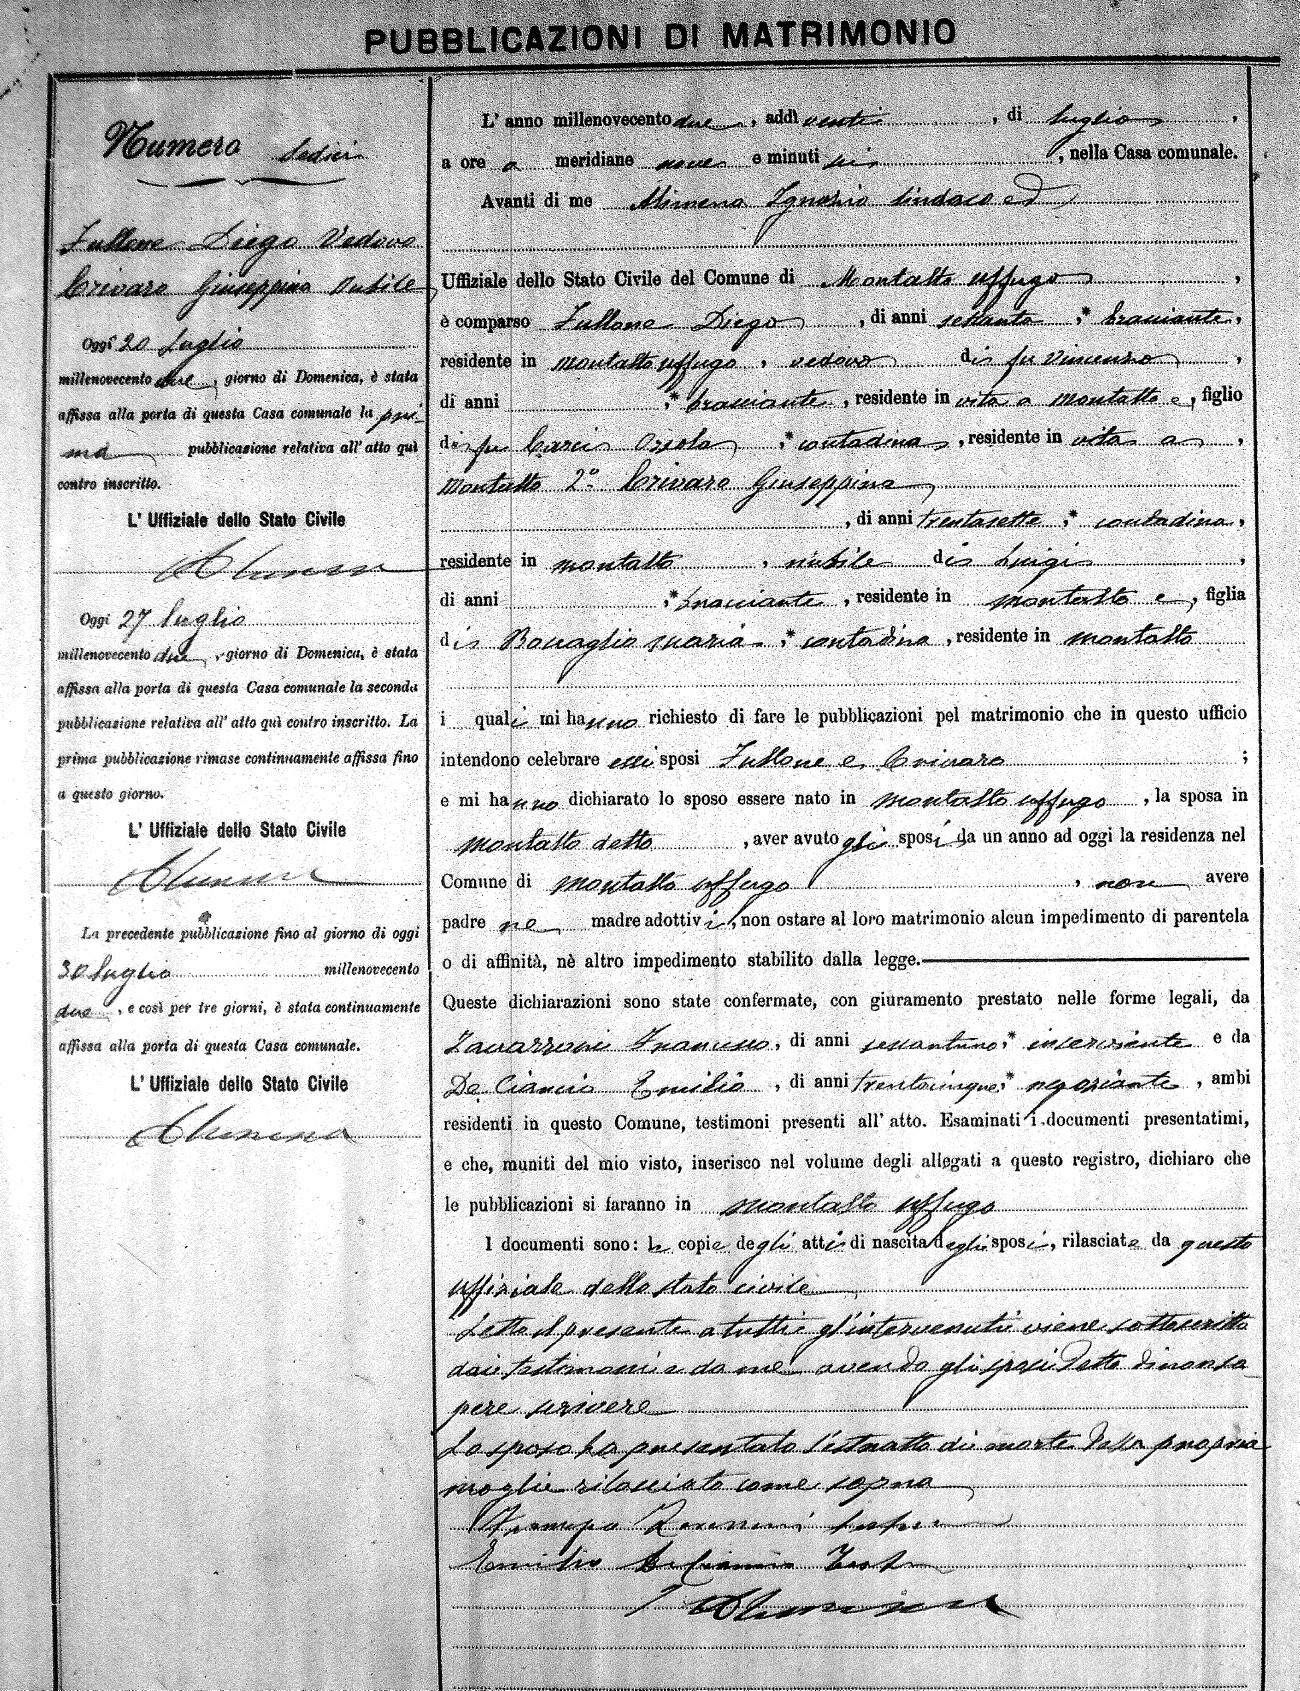 PUBBLICAZIONI DI MATRIMONIO
Numero Sedici
Fullone Diego Vedovo
Crivaro Giuseppina Nubile
Oggi 20 Luglio
millenovecento due, giorno di Domenica, è stata
affissa alla porta di questa Casa comunale la pri-
ma pubblicazione relativa all' atto quì
contro inscritto.
L' Uffiziale dello Stato Civile
Oggi 27 luglio
millenovecento due, giorno di Domenica, è stata
affissa alla porta di questa Casa comunale la seconda
pubblicazione relativa all' atto quì contro inscritto. La
prima pubblicazione rimase continuamente affissa fino
a questo giorno.
L' Uffiziale dello Stato Civile
La precedente pubblicazione fino al giorno di oggi
30 luglio millenovecento
due, e così per tre giorni, è stata continuamente
affissa alla porta di questa Casa comunale.
L' Uffiziale dello Stato Civile
L' anno millenovecento due, addì venti, di luglio,
a ore a meridiane nove e minuti sei, nella Casa comunale.
Avanti di me Alimena Ignazio Sindaco ed
Uffiziale dello Stato Civile del Comune di Montalto Uffugo,
è comparso Fullone Diego, di anni sessanta,* bracciante,
residente in Montalto Uffugo, vedovo di fu Vincenzo,
di anni ,* bracciante, residente in vita a Montalto e, figlio
di fu Carci Orsola ,* contadina, residente in vita a,
Montalto 2° Crivaro Giuseppina
, di anni trentasette,* contadina,
residente in Montalto, nubile di Luigi,
di anni ,* bracciante, residente in Montalto e, figlia
di Maria ,* contadina, residente in Montalto
i quali mi hanno richiesto di fare le pubblicazioni pel matrimonio che in questo ufficio
intendono celebrare essi sposi Fullone e Crivaro ;
e mi hanno dichiarato lo sposo essere nato in Montalto Uffugo, la sposa in
Montalto detto, aver avuto gli sposi da un anno ad oggi la residenza nel
Comune di Montalto Uffugo, non avere
padre ne madre adottivi, non ostare al loro matrimonio alcun impedimento di parentela
o di affinità, nè altro impedimento stabilito dalla legge.
Queste dichiarazioni sono state confermate, con giuramento prestato nelle forme legali, da
Zavarroni Francesco, di anni sessantuno,* inserviente e da
De Ciancio Emilio, di anni trentacinque,* negoziante, ambi
residenti in questo Comune, testimoni presenti all' atto. Esaminati i documenti presentatimi,
e che, muniti del mio visto, inserisco nel volume degli allegati a questo registro, dichiaro che
le pubblicazioni si faranno in Montalto Uffugo
I documenti sono: le copie degli atti di nascita degli sposi, rilasciate da questo
uffiziale dello stato civile
Letto il presente a tutti gl'intervenuti viene sottoscritto
dai testimoni e da me avendo gli sposi detto di non sa-
pere scrivere
Lo sposo ha presentato l'estratto di morte della propria
moglie rilasciato come sopra
Emilio De Ciancio Test